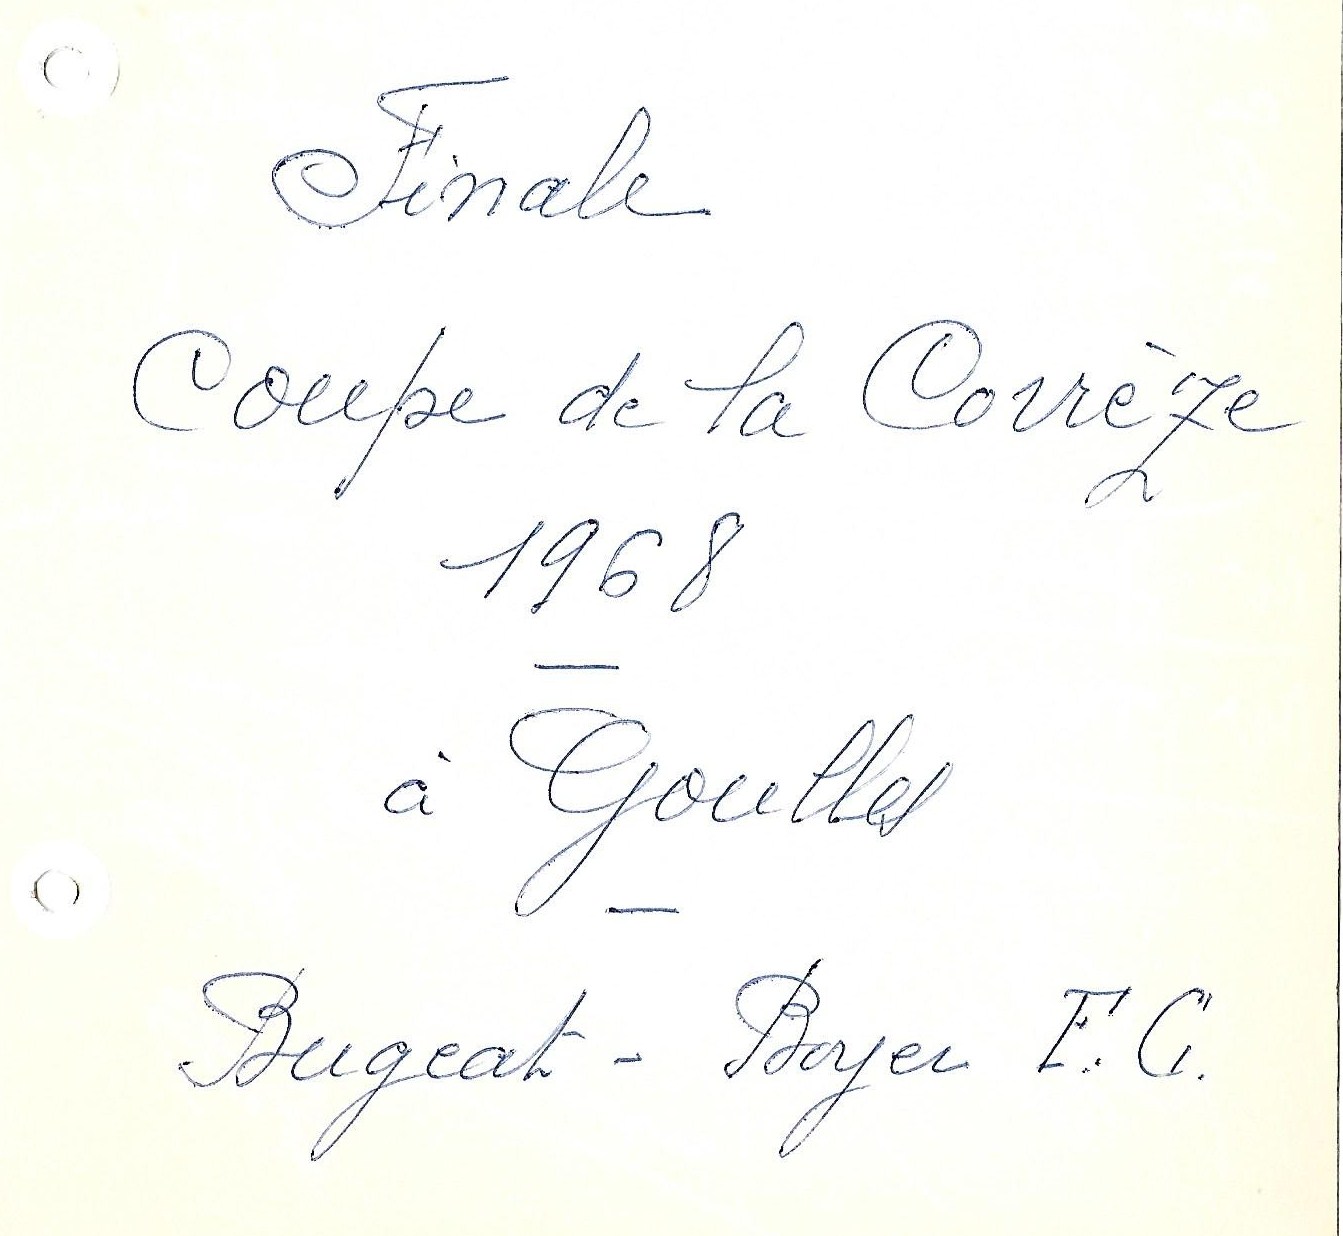 Finale
Coupe de la Corrèze
1968
—
à Goulles
—
Bugeat - Boyer F.C.